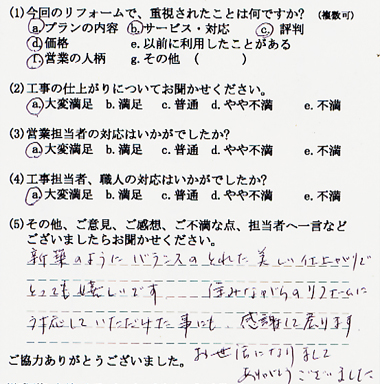 (1)今回のリフォームで、重視されたことは何ですか? (複数可)
a.プランの内容 b.サービス・対応 c. 評判
d.価格 e.以前に利用したことがある
f.営業の人柄 g.その他 ( )
(2)工事の仕上がりについてお聞かせください。
a.大変満足 b.満足 c.普通 d.やや不満 e.不満
(3)営業担当者の対応はいかがでしたか?
a.大変満足 b.満足 c.普通 d.やや不満 e.不満
(4)工事担当者、職人の対応はいかがでしたか?
a.大変満足 b.満足 c.普通 d.やや不満 e.不満
(5)その他、ご意見、ご感想、ご不満な点、担当者へ一言など
ございましたらお聞かせください。
新築のように バランスのとれた 美しい仕上がりで
とっても嬉しいです 住みながらのリフォームに
対応していただけた事にも 感謝して居ります
ご協力ありがとうございました。 お世話になりまして
ありがとうございました